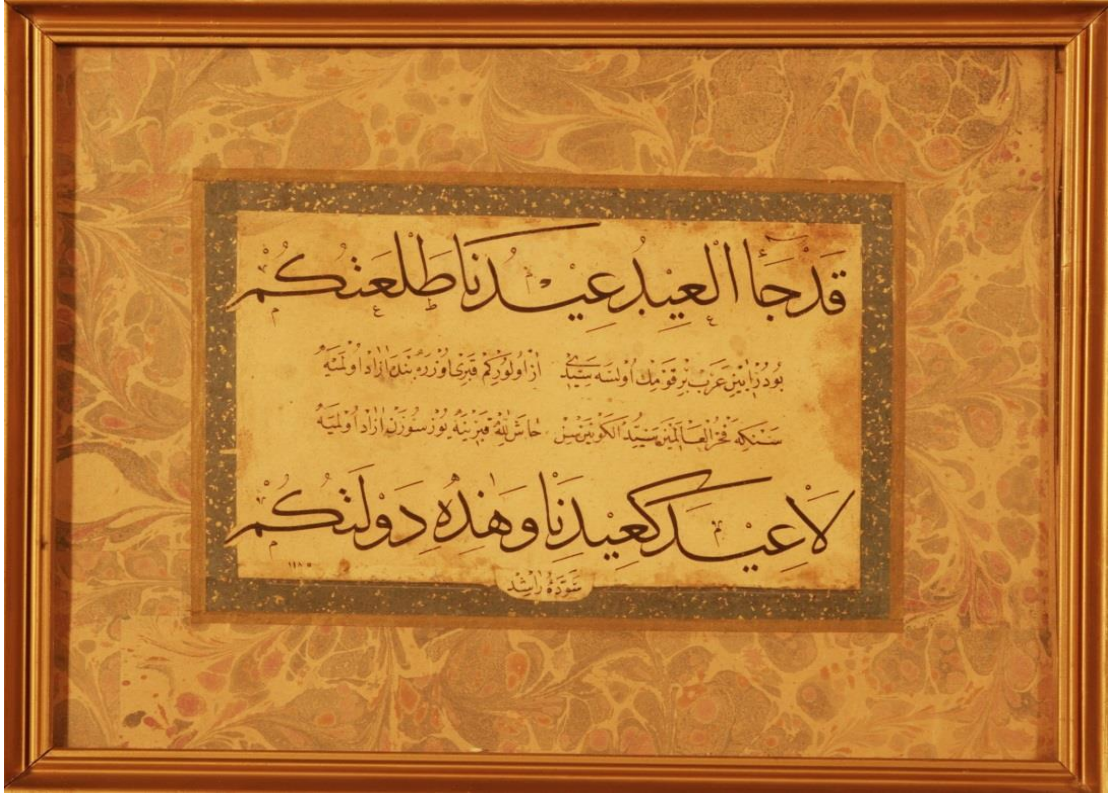 قَدْ جَاۤءَ الْعِيْدُ عِيْدُنَا طَلْعَتُكُمْ
بودر ايين عرب بر قومك اولسه سيدى آز اولور كم قبرى اوزره بنده آزاد اولميه
سنكه فخر العالمين سيد الكونين سن حاش لله قبرينه يوز سورن آزاد اولميه
لَا عِيْدَ كَعِيْدِنَا وَهٰذِهِ دَوْلَتُكُمْ
١١٨٥
سوّده راشد